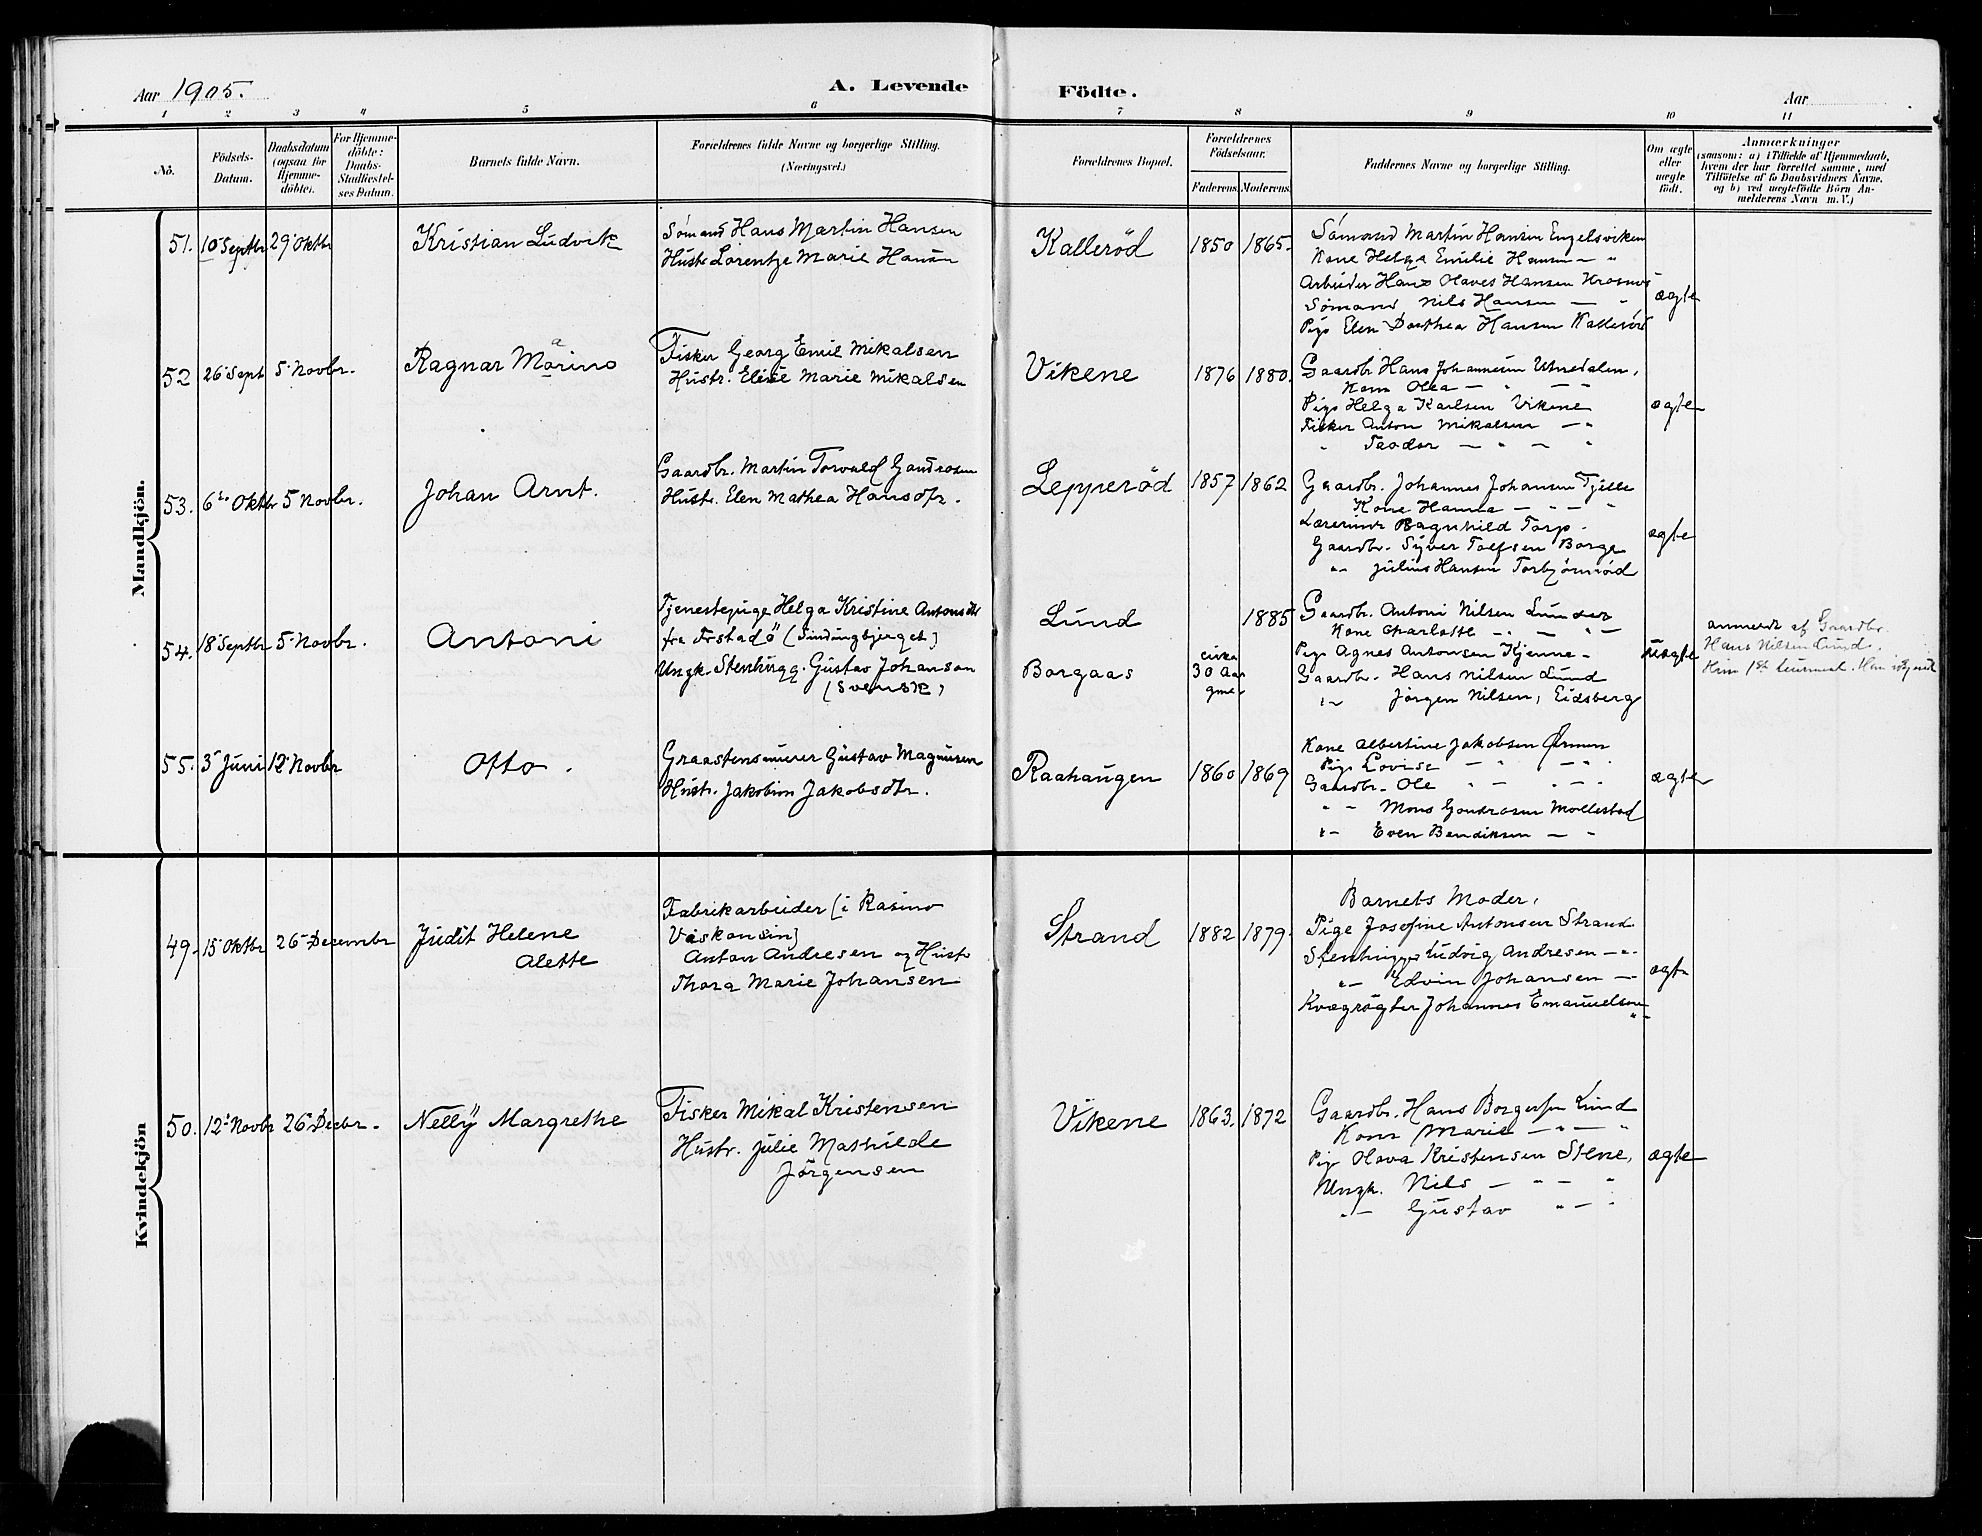 Aar 1905.
A. Levende Födte.
Aar
1 2 3 4 5 6 7 8 9 10 11
No.
Födsels-
Datum.
Daabsdatum
(ogsaa for
Hjemme-
döbte).
For Hjemme-
döbte:
Daabs-
Stadfæstel-
ses Datum.
Barnets fulde Navn.
Forældrenes fulde Navne og borgerlige Stilling.
(Næringsvei.)
Forældrenes Bopæl.
Forældrenes
Födselsaar.
Faderens. Moderens.
Faddernes Navne og borgerlige Stilling.
Om ægte
eller
uægte
födt.
Anmærkninger
(saasom: a) i Tilfælde af Hjemmedaab,
hvem der har forrettet samme, med
Tilföielse af to Daabsvidners Navne,
og b) ved uægtefödte Börn An-
melderens Navn m. V.)
Mandkjön.
51. 10 Septbr 29 Oktbr
Kristian Ludvik
Sømand Hans Martin Hansen
Hustr Lorentze Marie Hansn
Kallerød
1850 1865.
Sømand Martin Hansen Engelsviken
Kone Helga Emilie Hansen — "
Arbeider Hans Olaves Hansen Krosnes
Sømand Nils Hansen — "
Pige Elen Dorthea Hansen Kallerød
ægte
52 26 Sept 5 Novbr.
Ragnar Marino
a
Fisker Georg Emil Mikalsen
Hustr. Elise Marie Mikalsen
Vikene
1876 1880.
Gaardbr Hans Johannesen Utnedalen,
Kone Olea — " — "
Pige Helga Karlsen Vikene
Fisker Anton Mikalsen — "
" Teodor — " — "
ægte
53. 6 Oktbr 5 Novbr.
Johan Arnt.
Gaardbr. Martin Torvald Gundrosen
Hustr. Elen Mathea Hansdtr.
Lepperød
1857 1862
Gaardbr. Johannes Johansen Tjelle
Kone Hanna — " — "
Lærerinde Ragnhild Torp.
Gaardbr. Syver Tolfsen Borge
" — Julius Hansen Torbjørnrød
ægte
54. 18 Septbr 5 Novbr.
Antoni
Tjenestepige Helga Kristine Antonsdtr
fra
Ungk. Stenhugg. Gustav Johanson
(Svensk)
Lund
Borgaas
circa
30 Aar
gml
1885
Gaardbr. Antoni Nilsen
Kone Charlotte — " — "
Pige Agnes Antonsen Kjenne —
Gaardbr. Hans Nilsen Lund
" — Jørgen Nilsen, Eidsberg
uægte
anmeldt af Gaardbr.
Hans Nilsen Lund.
55. 3 Juni 12 Novbr
Otto.
Graastensmurer Gustav Magnusen
Hustr. Jakobine Jakobsdtr.
Raahaugen
1860 1869
Kone Albertine Jakobsen Ørmen
Pige Lovise — " — "
Gaardbr. Ole " — " — "
" — Mons Gundrosen Mollestad
" — Even Bendiksen — "
ægte
Kvindekjön
49. 15 Oktbr 26 Decembr
Judit Helene
Alette
Fabrikarbeider (i Rasino
Viskonsin)
Anton Andresen og Hustr
Thora Marie Johansen
Strand
1882 1879.
Barnets Moder,
Pige Josefine Antonsen Strand
Stenhugger Ludvig Andresen — "
" — Edvin Johansen —
Kvægrøgter Johannes Emanuelsen
"
ægte
50. 12 Novbr 26 Decbr.
Nelly Margrethe
Fisker Mikal Kristensen
Hustr. Julie Mathilde
Jørgensen
Vikene
1863. 1872
Gaardbr. Hans Borgersen Lund
Kone Marie — " — "
Pige Olava Kristensen Stene,
Ungk. Nils — " — "
" — Gustav " — "
ægte